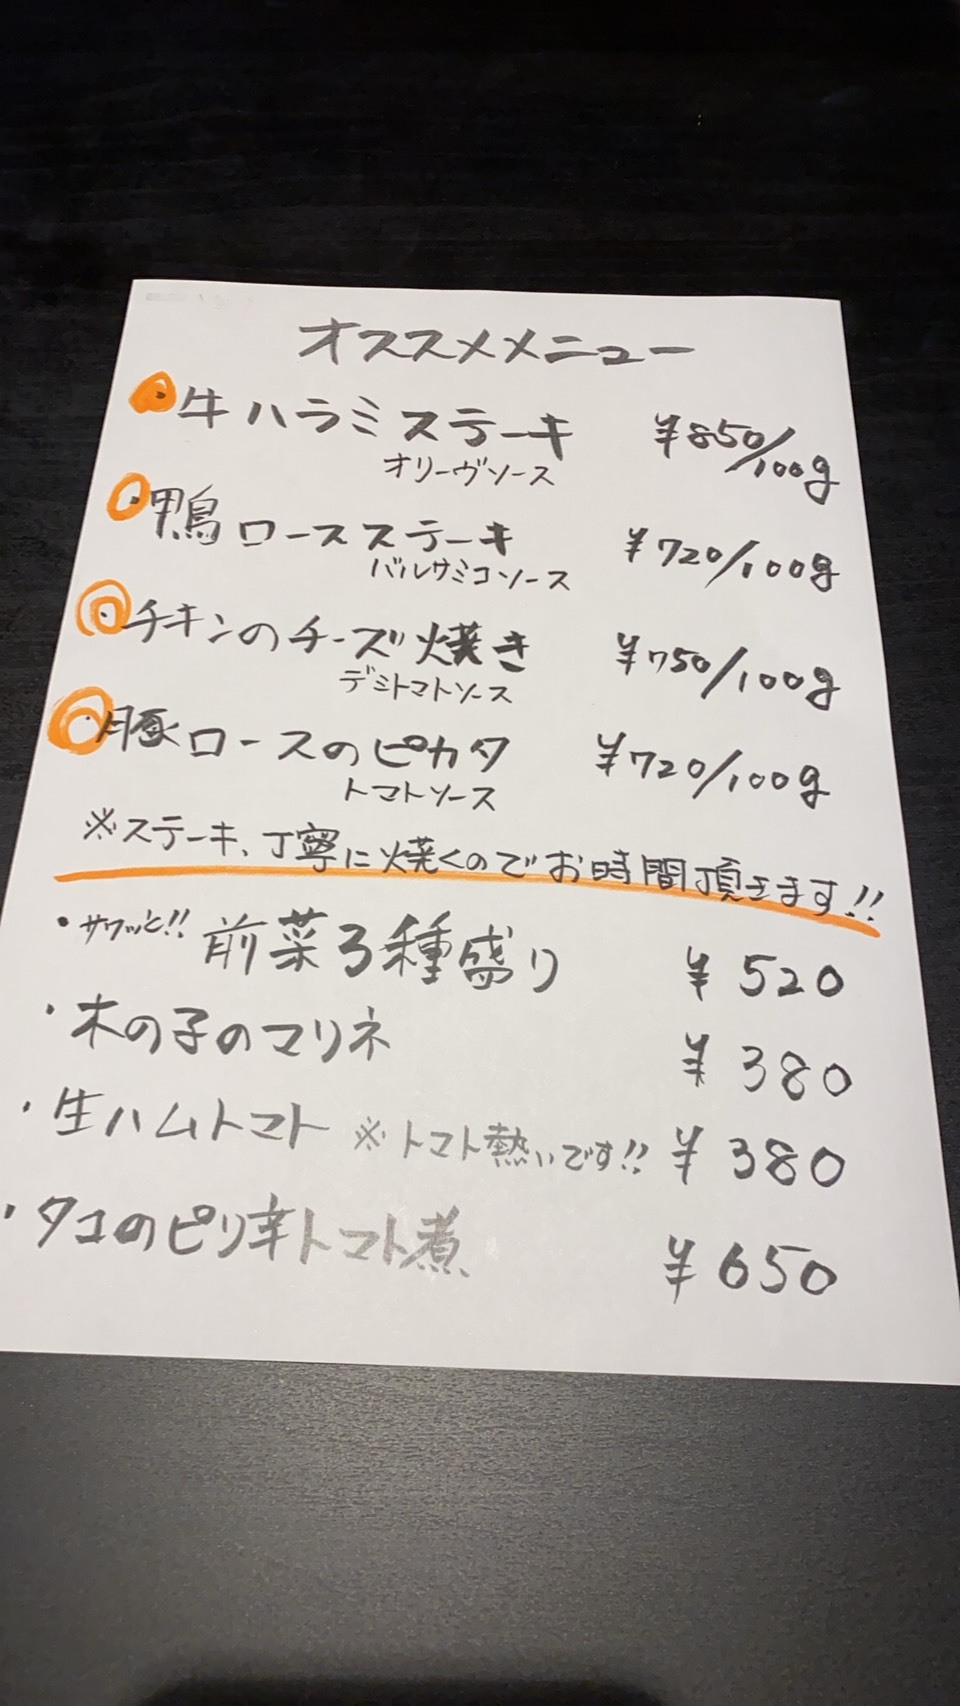 オススメメニュー
・牛ハラミステーキ ¥850/100g
オリーヴソース
・鴨ロースステーキ ¥720/100g
バルサミコソース
・チキンのチーズ焼き ¥750/100g
デミトマトソース
・豚ロースのピカタ ¥720/100g
トマトソース
※ステーキ、丁寧に焼くのでお時間頂きます!!
・サクッと!! 前菜3種盛り ¥520
・木の子のマリネ ¥380
・生ハムトマト ※トマト熱いです!! ¥380
・タコのピリ辛トマト煮 ¥650